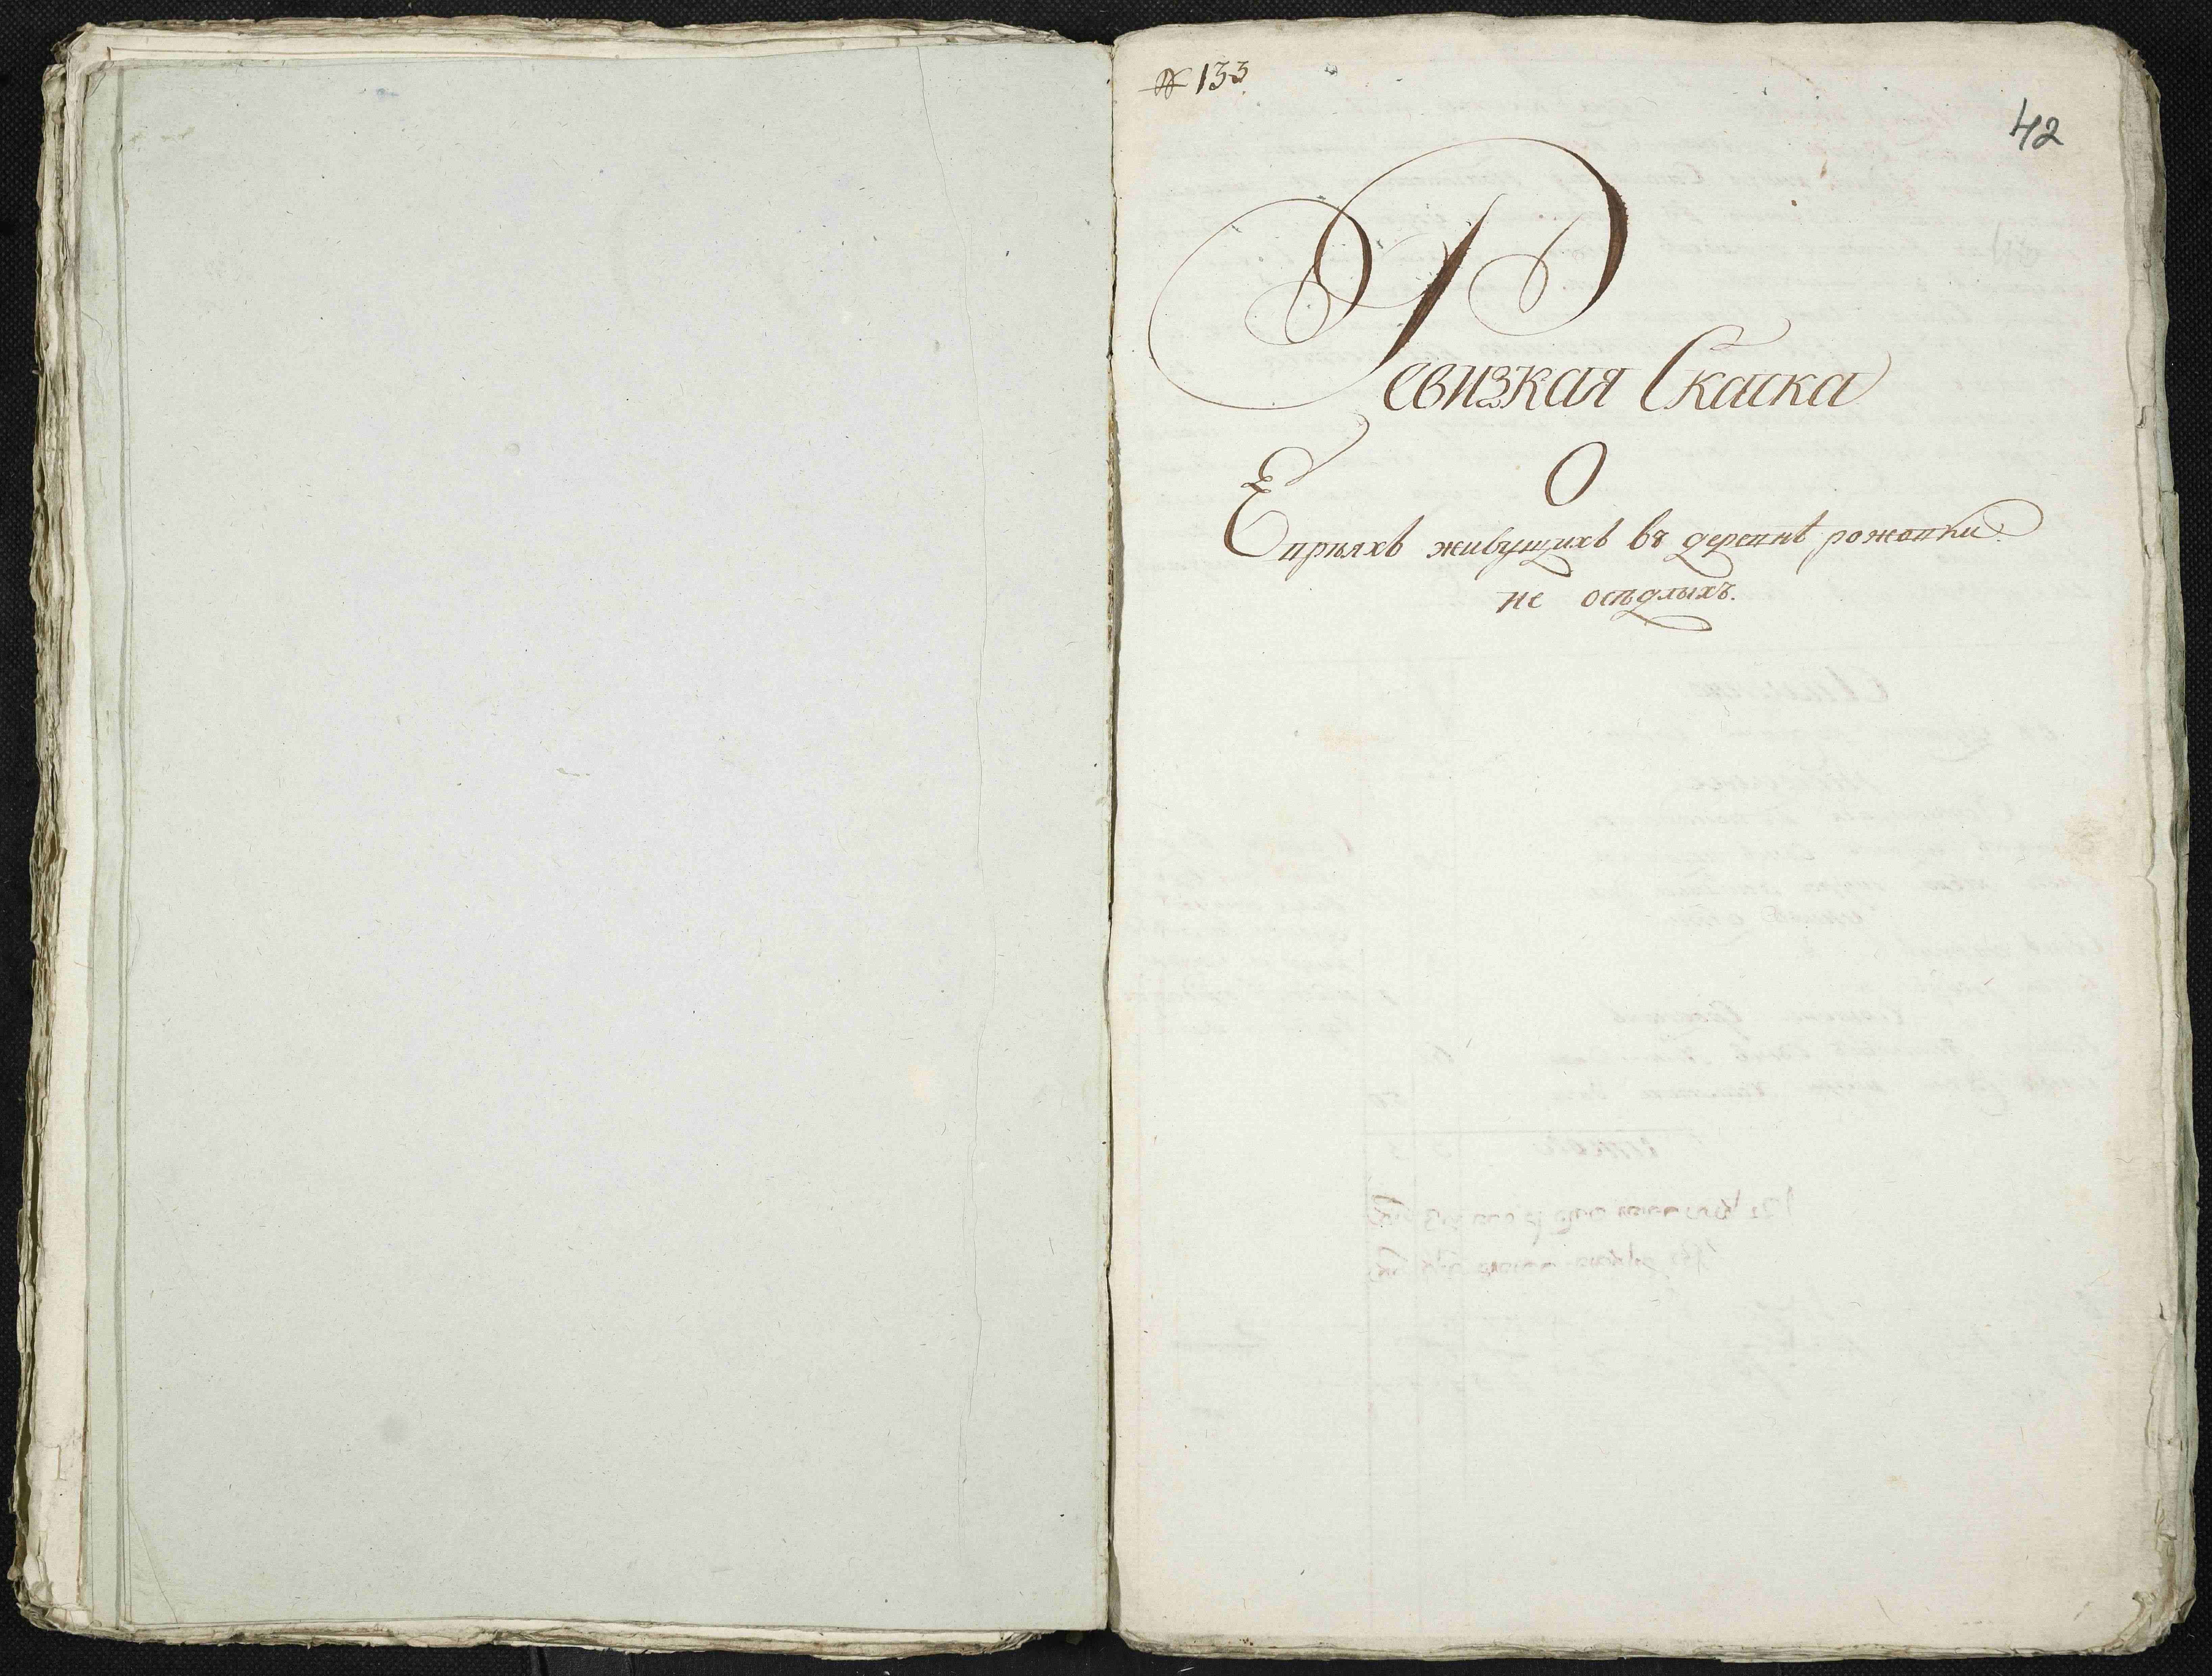 № 133.
42
Ревизкая Скаска
О
Евреяхъ живущихъ въ деревнѣ
не осѣдлыхъ.